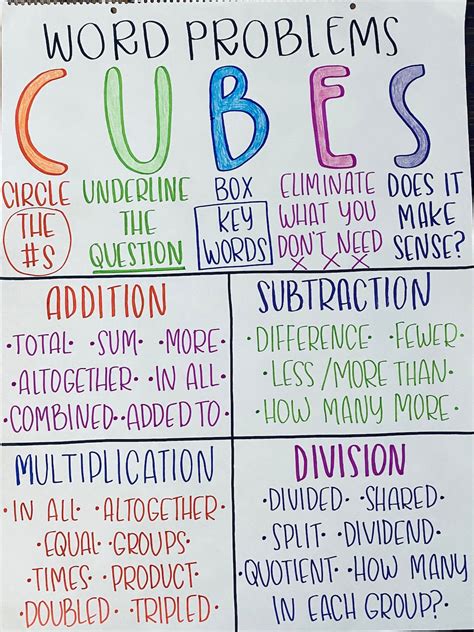 WORD PROBLEMS
CUBES
CIRCLE
THE
#S
UNDERLINE
THE
QUESTION
BOX
KEY
WORDS
ELIMINATE
WHAT YOU
DON'T NEED
DOES IT
MAKE
SENSE?
ADDITION
•TOTAL •SUM •MORE
•ALTOGETHER •IN ALL
•COMBINED •ADDED TO
SUBTRACTION
•DIFFERENCE •FEWER
•LESS / MORE THAN
•HOW MANY MORE
MULTIPLICATION
•IN ALL •ALTOGETHER
•EQUAL GROUPS
•TIMES •PRODUCT
•DOUBLED •TRIPLED
DIVISION
•DIVIDED •SHARED
•SPLIT •DIVIDEND
•QUOTIENT •HOW MANY
IN EACH GROUP?